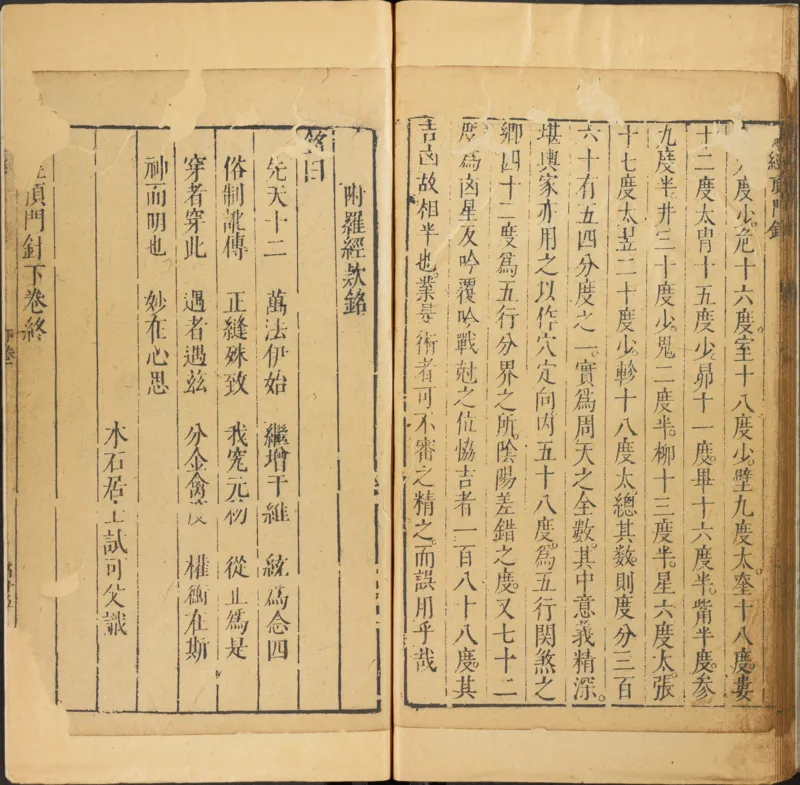 經頂門針
度少。危十六度。室十八度少。壁九度太。奎十八度。婁
十二度太。胃十五度少。昴十一度。畢十六度半。觜半度。參
九度半。井三十度少。鬼二度半。柳十三度半。星六度太。張
十七度太。翌二十度少。軫十八度太。總其數。則度分三百
六十有五四分度之一。實爲周天之全數。其中意義精深。
堪輿家亦用之以作穴定向。內五十八度。爲五行関煞之
鄉。四十二度爲五行分界之所。陰陽差錯之度。又七十二
度爲凶星反吟覆吟戰尅之位。恊吉者一百八十八度。其
吉凶故相半也。業是術者可不審之精之。而誤用乎哉
附羅經欵銘
銘曰
先天十二　萬法伊始　繼增干維　統爲念四
俗制訛傳　正縫殊致　我究元初　從正爲是
穿者穿此　遇者遇玆　分金禽　權衡在斯
神而明也　妙在心思
木石居士試可父識
頂門針下卷終